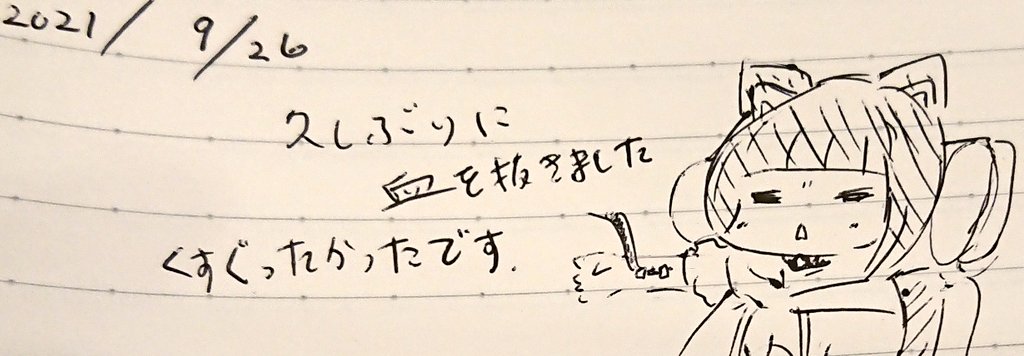 2021/ 9/26
久しぶりに
血を抜きました
くすぐったかったです.